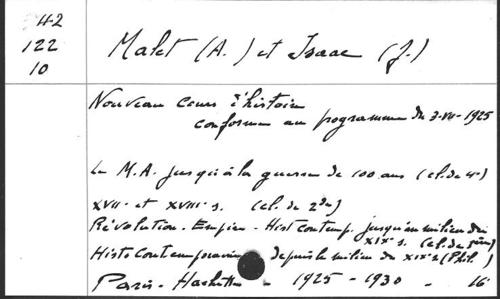 42
122
10
Malet (A.) et Isaac (J.)
Nouveau cours d'histoire
conforme au programme du 3-VII-1925
Le M.A. jusqu'à la guerre de 100 ans (cl. de 4e)
XVIIe et XVIIIe s. (cl. de 2de)
Révolution-Empire-Hist contemp. jusqu'au milieu du
XIXe s. (cl. de 1ère)
Histe Contemporaine depuis le milieu du XIXe s. (Phil.)
Paris - Hachette - 1925 - 1930 - 16°